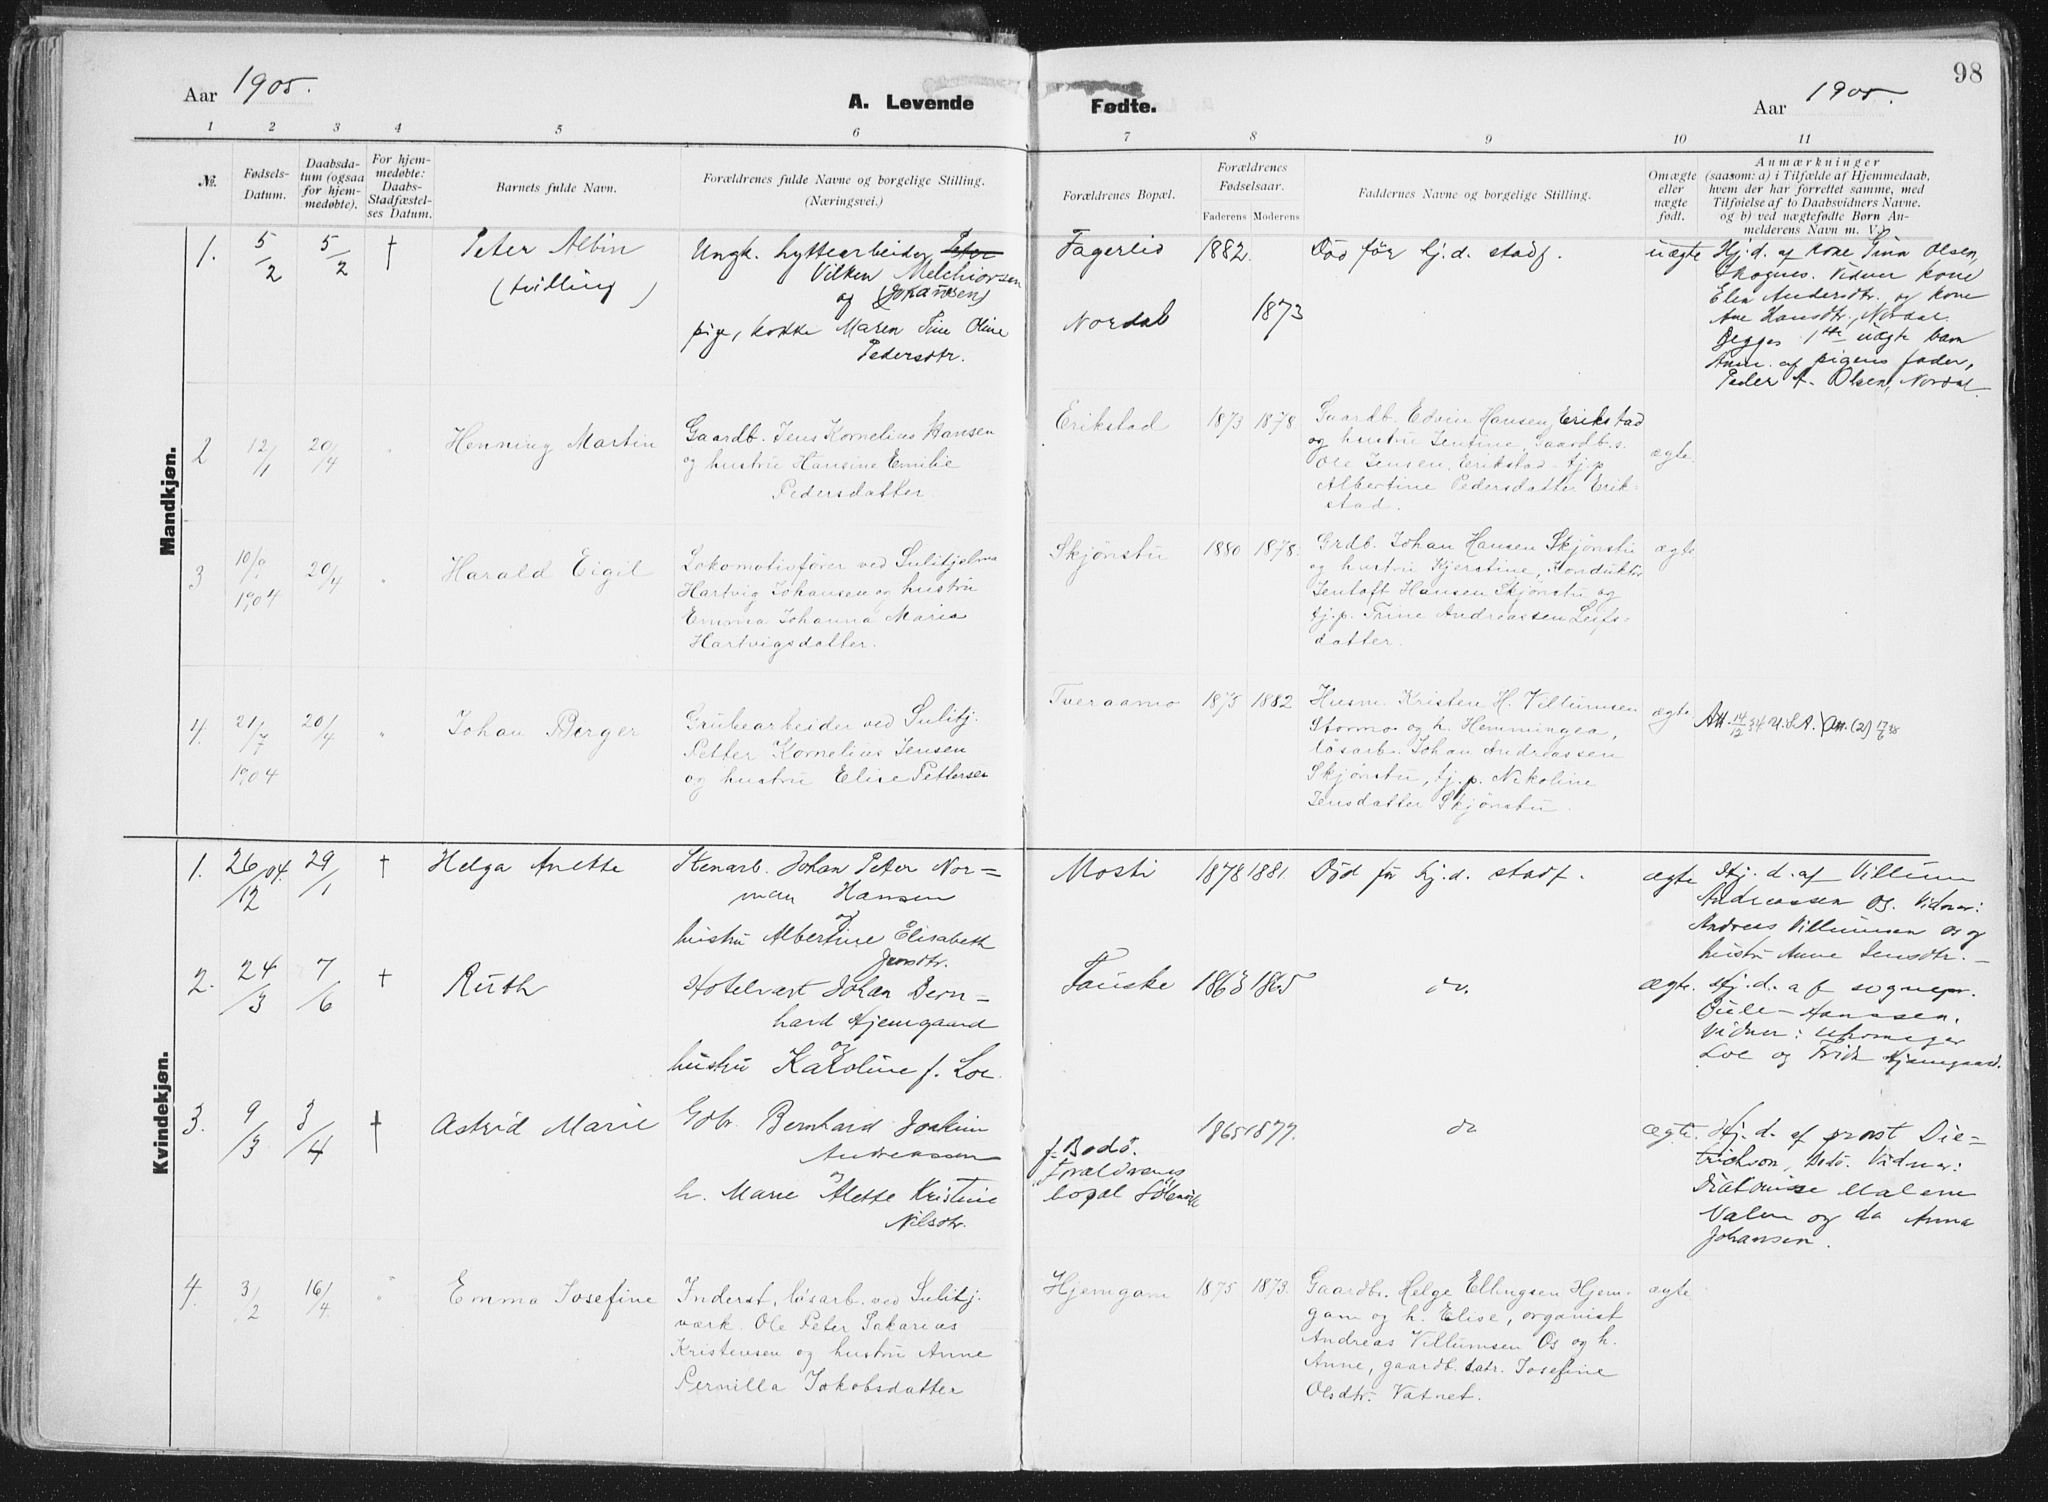 Aar 1905.
A. Levende
Fødte.
Aar 1905.
98
1 2 3 4 5 6 7 8 9 10 11
№.
Fødsels-
Datum.
Daabsda-
tum (ogsaa
for hjem-
medøbte).
For hjem-
medøbte:
Daabs-
Stadfæstel-
ses Datum.
Barnets fulde Navn.
Forældrenes fulde Navne og borgelige Stilling.
(Næringsvei.)
Forældrenes Bopæl.
Forældrenes
Fødselsaar.
Faderens Moderens
Faddernes Navne og borgelige Stilling.
Omægte
eller
uægte
født.
Anmærkninger
(saasom: a) i Tilfælde af Hjemmedaab,
hvem der har forrettet samme, med
Tilføielse af to Daabsvidners Navne.
og b) ved uægtefødte Børn An-
melderens Navn m. V.)
Mandkjøn.
1. 5/2 5/2 † Peter Albin
(tvilling)
Ungk. hyttearbeider Peter
Vilken Melchiorsen
og (Johansen)
pige, kokke Maren Tine Oline
Pedersdtr.
Fagerlid 1882.
Nordal 1873
Død før hj.d. stadf.
uægte
Hj.d. af kone Tina Olsen,
Skognes. Vidner kone
Elen Andersdtr. og kone
Ane Hansdtr., Nordal.
Begges 1ste uægte barn
Anm. af pigens fader,
Peder A. Olsen, Nordal.
2 12/1 20/4 " Henning Martin
Gaardb. Jens Kornelius Hansen
og hustru Hansine Emilie
Pedersdatter
Erikstad 1873 1878
Gaardb. Edvin Hansen, Erikstad
og hustru Jentine, Gaardb.s.
Ole Jensen, Erikstad, tj.p.
Albertine Pedersdatter Erik-
stad.
ægte.
3 10/9 1904 20/4 " Harald Eigil
Lokomotivfører ved Sulitjelma
Hartvig Johansen og hustru
Emma Johanna Maria
Hartvigsdatter.
Skjønstu 1880 1878.
Grdb. Johan Hansen Skjønstu
og hustru Kjerstine, Konduktør
Jentoft Hansen Skjønstu og
tj.p. Trine Andreassen Leifs-
datter.
ægte
4. 21/7 1904 20/4 " Johan Birger
Grubearbeider ved Sulitj.
Petter Kornelius Jensen
og hustru Elise Pettersen
Tveraamo 1875 1882
Husm. Kristen H. Villumsen
Stormo og h. Hemmingea,
løsarb. Johan Andreassen
Skjønstu, tj.p. Nikoline
Jensdatter Skjønstu.
ægte
Att. 14/12 54 U.S.A. Att. (2) 17/6 38
Kvindekjøn.
1. 26/12 04. 29/1 † Helga Anette
Stenarb. Johan Peter Nor=
man Hansen
og
hustru Albertine Elisabeth
Jensdtr.
Mosti 1878 1881.
Død før hj.d. stadf.
ægte
Hj.d. af Villum
Andreassen Os. Vidner:
Andreas Villumsen Os og
hustru Anne Jensdtr.
2. 24/3 7/6 † Ruth
Hotelvært Johan Bern=
hard Hjemgaard
og
hustru Karoline f. Loe.
Fauske 1863 1865
do.
ægte.
Hj.d. af sognepr.
Bull-Hanssen.
Vidner: uhrmager
Loe og Hjemgaard.
3. 9/3 3/4 † Astrid Marie
Gdbr. Bernhard Joakim
Andreassen
og
h. Marie Alette Kristine
Nilsdtr.
f. Bodø.
Forældrenes
bopæl
1865 1877.
do
ægte.
Hj.d. af provst Die=
trichson, Bodø. Vidner:
Diakonisse Malene
Valen og do Anna
Johansen.
4. 3/2 16/4. " Emma Josefine
Inderst, løsarb. ved Sulitj.
værk. Ole Peter Sakarias
Kristensen og hustru Anne
Pernilla Jakobsdatter
Hjemgam 1875 1873.
Gaardbr. Helge Ellingsen Hjem-
gam og h. Elise, organist
Andreas Villumsen Os og h.
Anne, gaardb. datr. Josefine
Olsdtr. Vatnet.
ægte